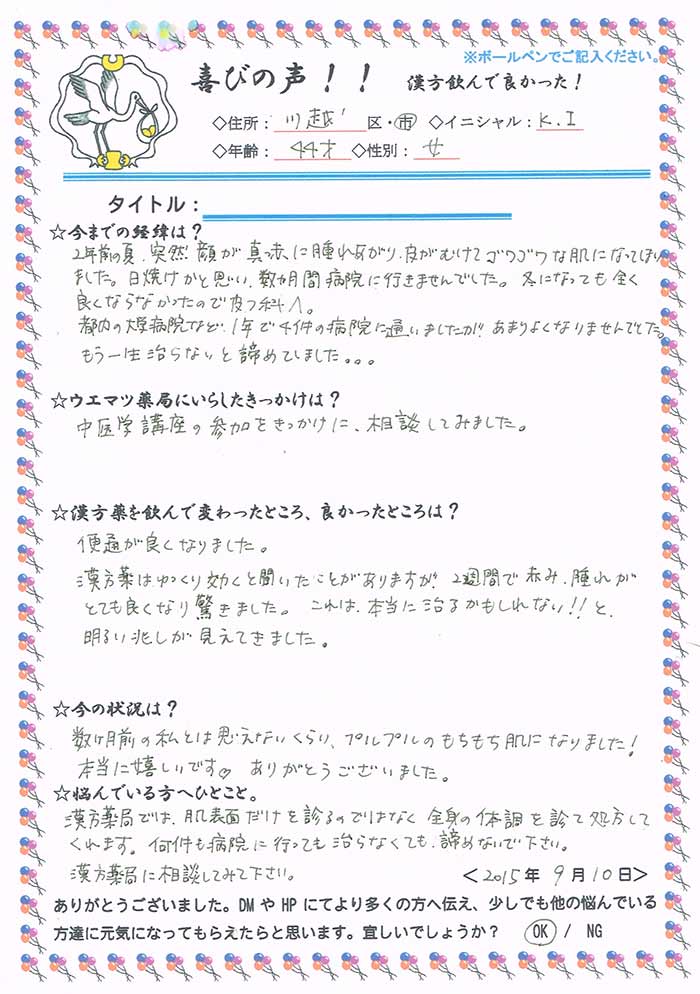 ※ボールペンでご記入ください。
喜びの声！！ 漢方飲んで良かった！
◇住所：川越 区・市 ◇イニシャル：K.I
◇年齢：44才 ◇性別：女
タイトル：
☆今までの経緯は？
2年前の夏、突然 顔が真っ赤に腫れあがり、皮がむけてゴワゴワな肌になってしまい
ました。日焼けかと思い、数ヵ月間病院に行きませんでした。冬になっても全く
良くならなかったので皮フ科へ。
都内の大学病院など、1年で4件の病院に通いましたが、あまりよくなりませんでした。
もう一生治らないと諦めていました。。。
☆ウエマツ薬局にいらしたきっかけは？
中医学講座の参加をきっかけに、相談してみました。
☆漢方薬を飲んで変わったところ、良かったところは？
便通が良くなりました。
漢方薬はゆっくり効くと聞いたことがありますが、2週間で赤み、腫れが
とても良くなり驚きました。これは、本当に治るかもしれない!!と、
明るい兆しが見えてきました。
☆今の状況は？
数ヶ月前の私とは思えないくらい、プルプルのもちもち肌になりました！
本当に嬉しいです♡ ありがとうございました。
☆悩んでいる方へひとこと。
漢方薬局では、肌表面だけを診るのではなく 全身の体調を診て処方して
くれます。何件も病院に行っても治らなくても、諦めないで下さい。
漢方薬局に相談してみて下さい。 ＜2015年 9月10日＞
ありがとうございました。DM や HP にてより多くの方へ伝え、少しでも他の悩んでいる
方達に元気になってもらえたらと思います。宜しいでしょうか？ OK / NG